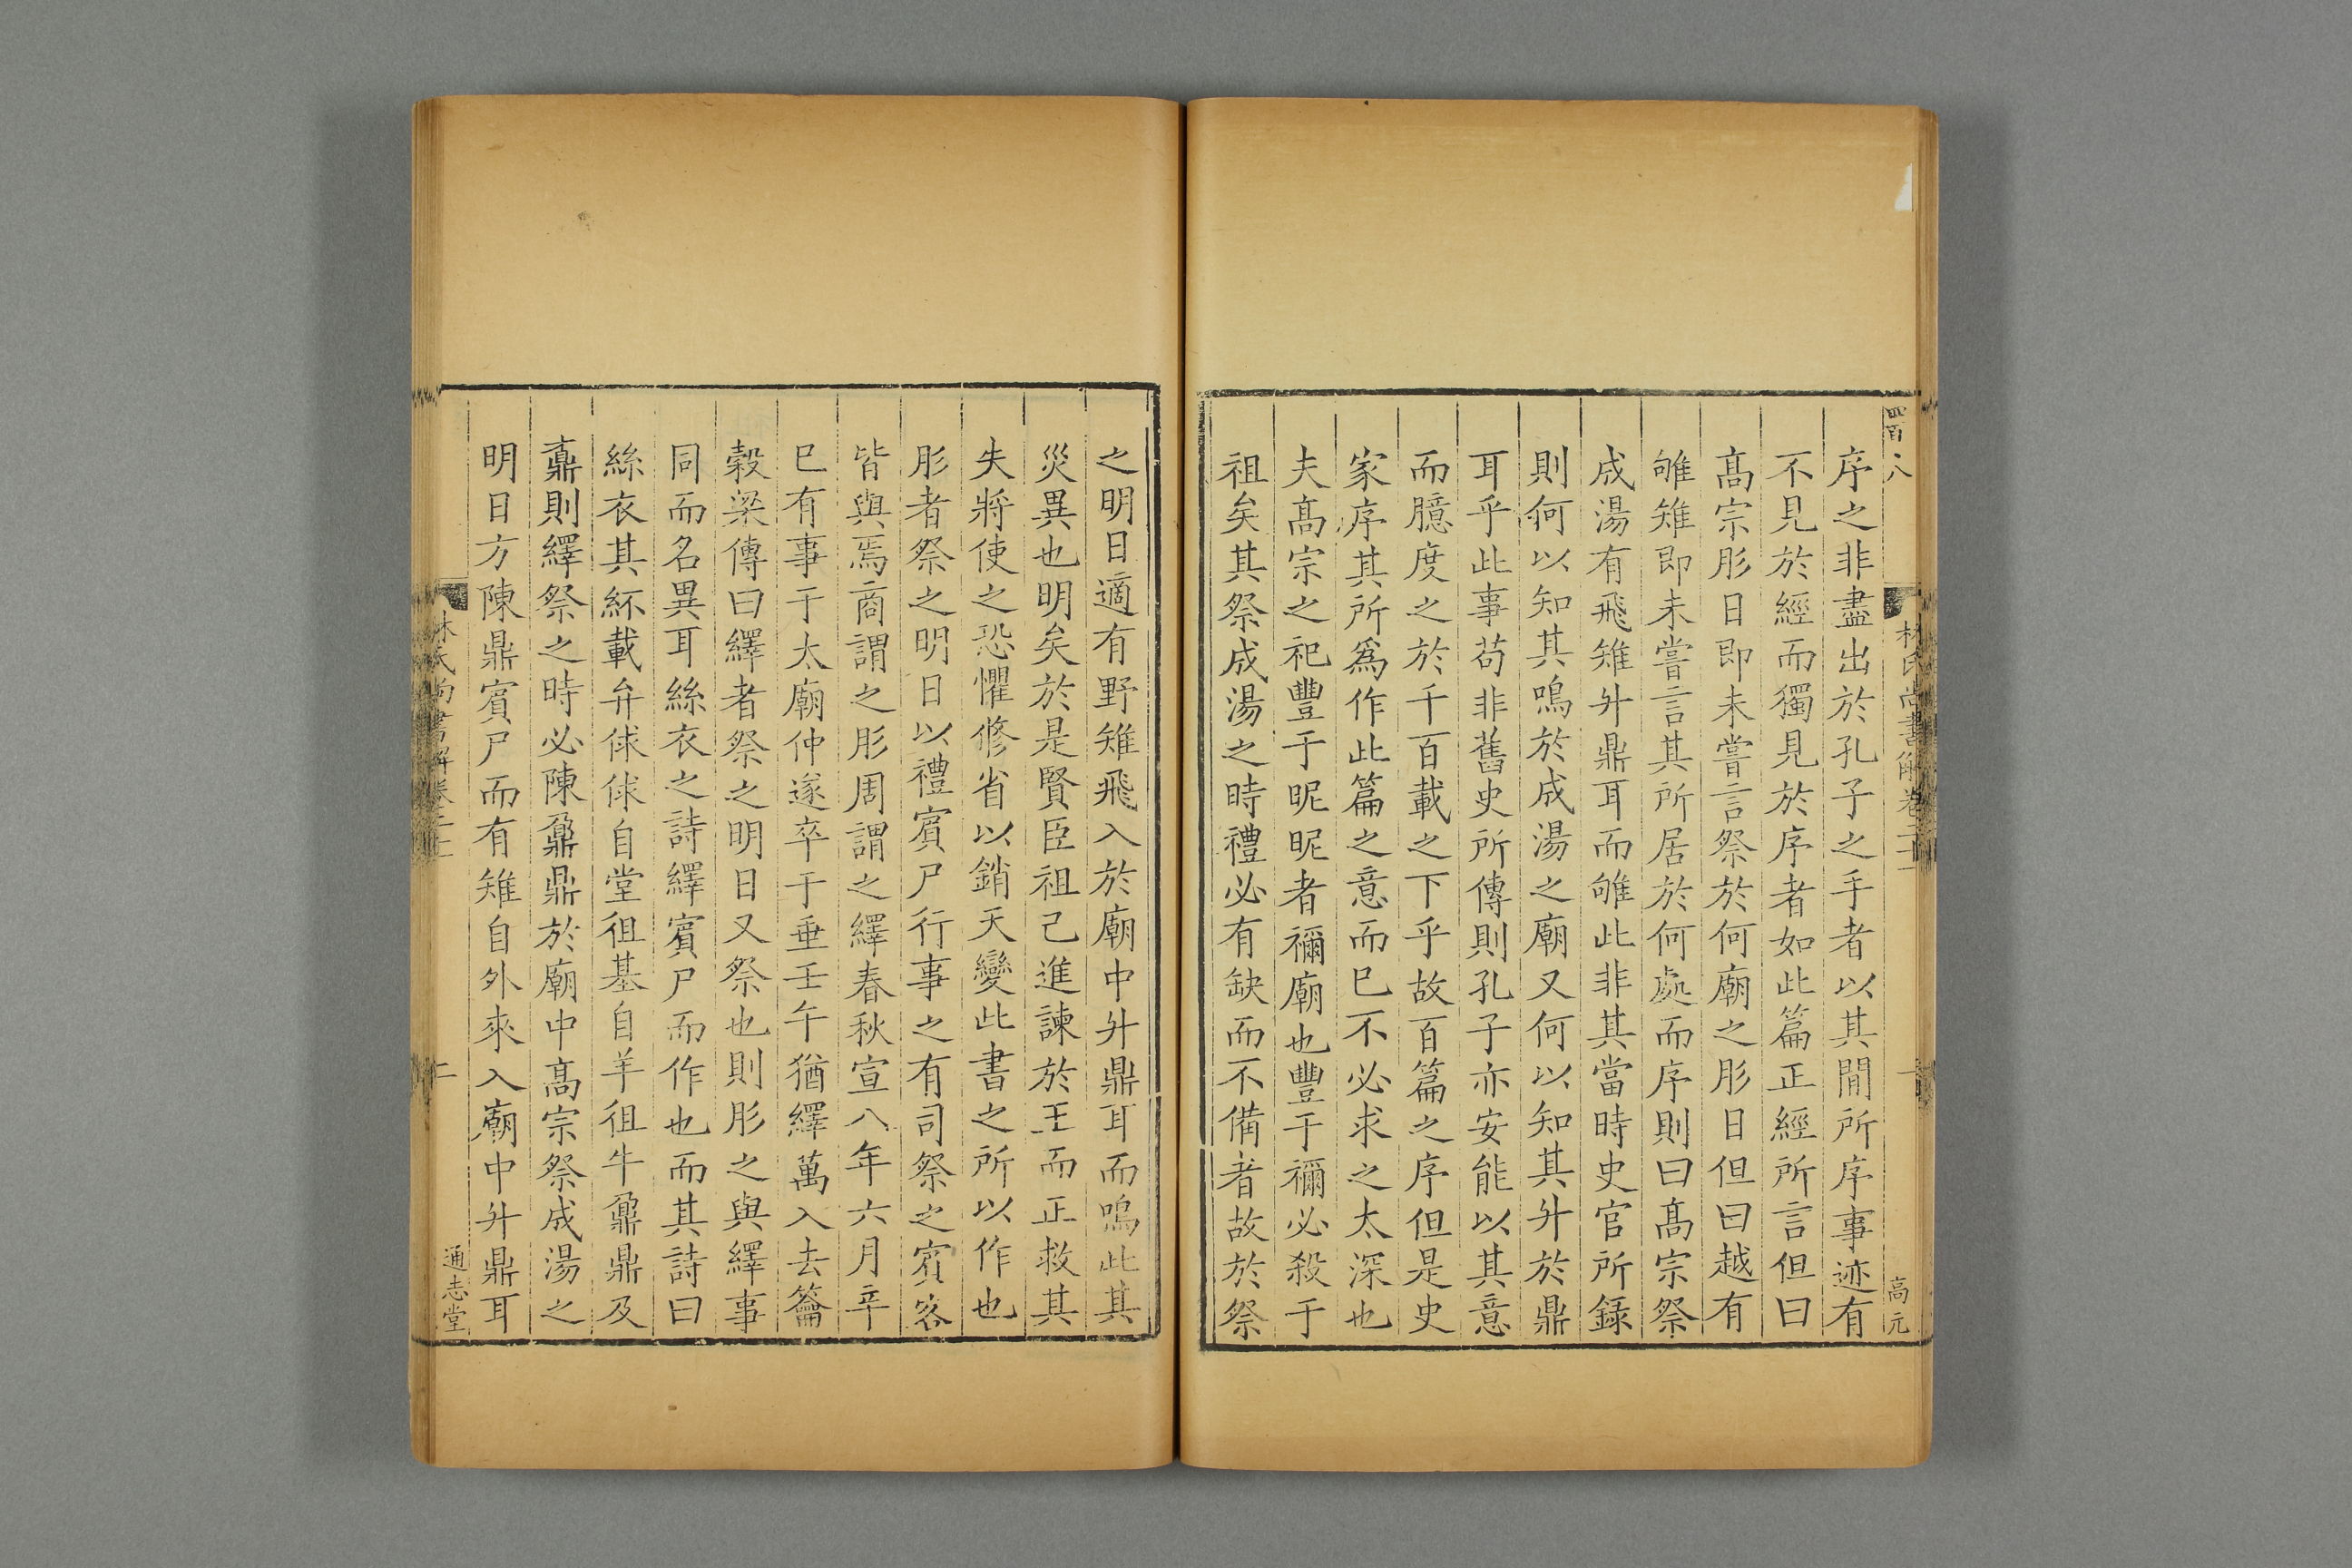 四百八
林氏尚書解卷二十
一
高元
序之非盡出於孔子之手者以其閒所序事迹有
不見於經而獨見於序者如此篇正經所言但曰
高宗肜日即未嘗言祭於何廟之肜日但曰越有
雊雉即未嘗言其所居於何處而序則曰高宗祭
成湯有飛雉升鼎耳而雊此非其當時史官所録
則何以知其鳴於成湯之廟又何以知其升於鼎
耳乎此事苟非舊史所傳則孔子亦安能以其意
而臆度之於千百載之下乎故百篇之序但是史
家序其所爲作此篇之意而已不必求之太深也
夫高宗之祀豐于昵昵者禰廟也豐于禰必殺于
祖矣其祭成湯之時禮必有缺而不備者故於祭
之明日適有野雉飛入於廟中升鼎耳而鳴此其
災異也明矣於是賢臣祖己進諫於王而正救其
失將使之恐懼修省以銷天變此書之所以作也
肜者祭之明日以禮賓尸行事之有司祭之賓客
皆與焉商謂之肜周謂之繹春秋宣八年六月辛
巳有事于太廟仲遂卒于垂壬午猶繹萬入去籥
穀梁傳曰繹者祭之明日又祭也則肜之與繹事
同而名異耳絲衣之詩繹賓尸而作也而其詩曰
絲衣其紑載弁俅俅自堂徂基自羊徂牛鼐鼎及
鼒則繹祭之時必陳鼐鼎於廟中高宗祭成湯之
明日方陳鼎賓尸而有雉自外來入廟中升鼎耳
林氏尚書解卷二十
通志堂